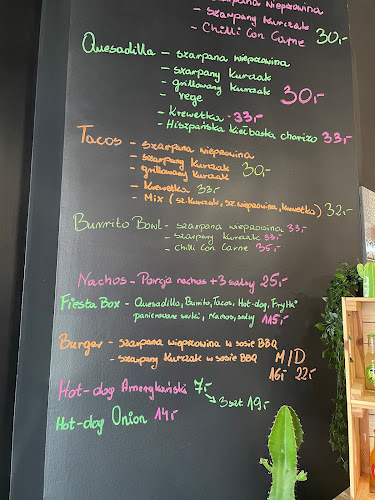 - szarpana wieprzowina
- szarpany kurczak
- Chilli Con Carne 30,-
Quesadilla - szarpana wieprzowina
- szarpany kurczak
- grillowany kurczak 30,-
- vege
- Krewetka - 33,-
- Hiszpańska kiełbaska chorizo 33,-
Tacos - szarpana wieprzowina
- szarpany kurczak 30,-
- grillowany kurczak
- Krewetka 33,-
- Mix (sz. kurczak, sz. wieprzowina, krewetka) 32,-
Burrito Bowl - szarpana wieprzowina 33,-
- szarpany kurczak 33,-
- Chilli Con Carne 35,-
Nachos - Porcja nachos + 3 salsy 25,-
Fiesta Box - Quesadilla, Burrito, Tacos, Hot-dog, Frytki
panierowane serki, Nachos, salsy 115,-
Burger - szarpana wieprzowina w sosie BBQ
- szarpany kurczak w sosie BBQ M/D
16,- 22,-
Hot-dog Amerykański 7,-
→ 3szt 19,-
Hot-dog Onion 14,-